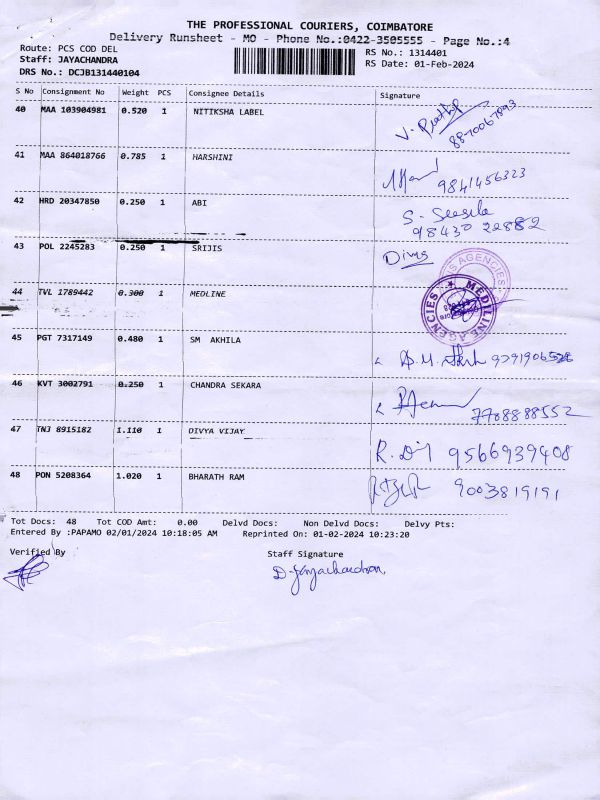 THE PROFESSIONAL COURIERS, COIMBATORE
Delivery Runsheet - MO - Phone No.:0422-3505555 - Page No.:4
Route: PCS COD DEL RS No.: 1314401
Staff: JAYACHANDRA RS Date: 01-Feb-2024
DRS No.: DCJB131440104
S No Consignment No Weight PCS Consignee Details Signature
40 MAA 103904981 0.520 1 NITIKSHA LABEL
41 MAA 864018766 0.785 1 HARSHINI 9841456323
42 HRD 20347850 0.250 1 ABI 98430 22882
43 POL 2245283 0.250 1 SRIJIS
44 TVL 1789442 0.300 1 MEDLINE MEDILINE AGENCIES
45 PGT 7317149 0.480 1 SM AKHILA
46 KVT 3002791 0.250 1 CHANDRA SEKARA 7708888552
47 TNJ 8915182 1.110 1 DIVYA VIJAY 9566939408
48 PON 5208364 1.020 1 BHARATH RAM 9003819191
Tot Docs: 48 Tot COD Amt: 0.00 Delvd Docs: Non Delvd Docs: Delvy Pts:
Entered By :PAPAMO 02/01/2024 10:18:05 AM Reprinted On: 01-02-2024 10:23:20
Verified By Staff Signature